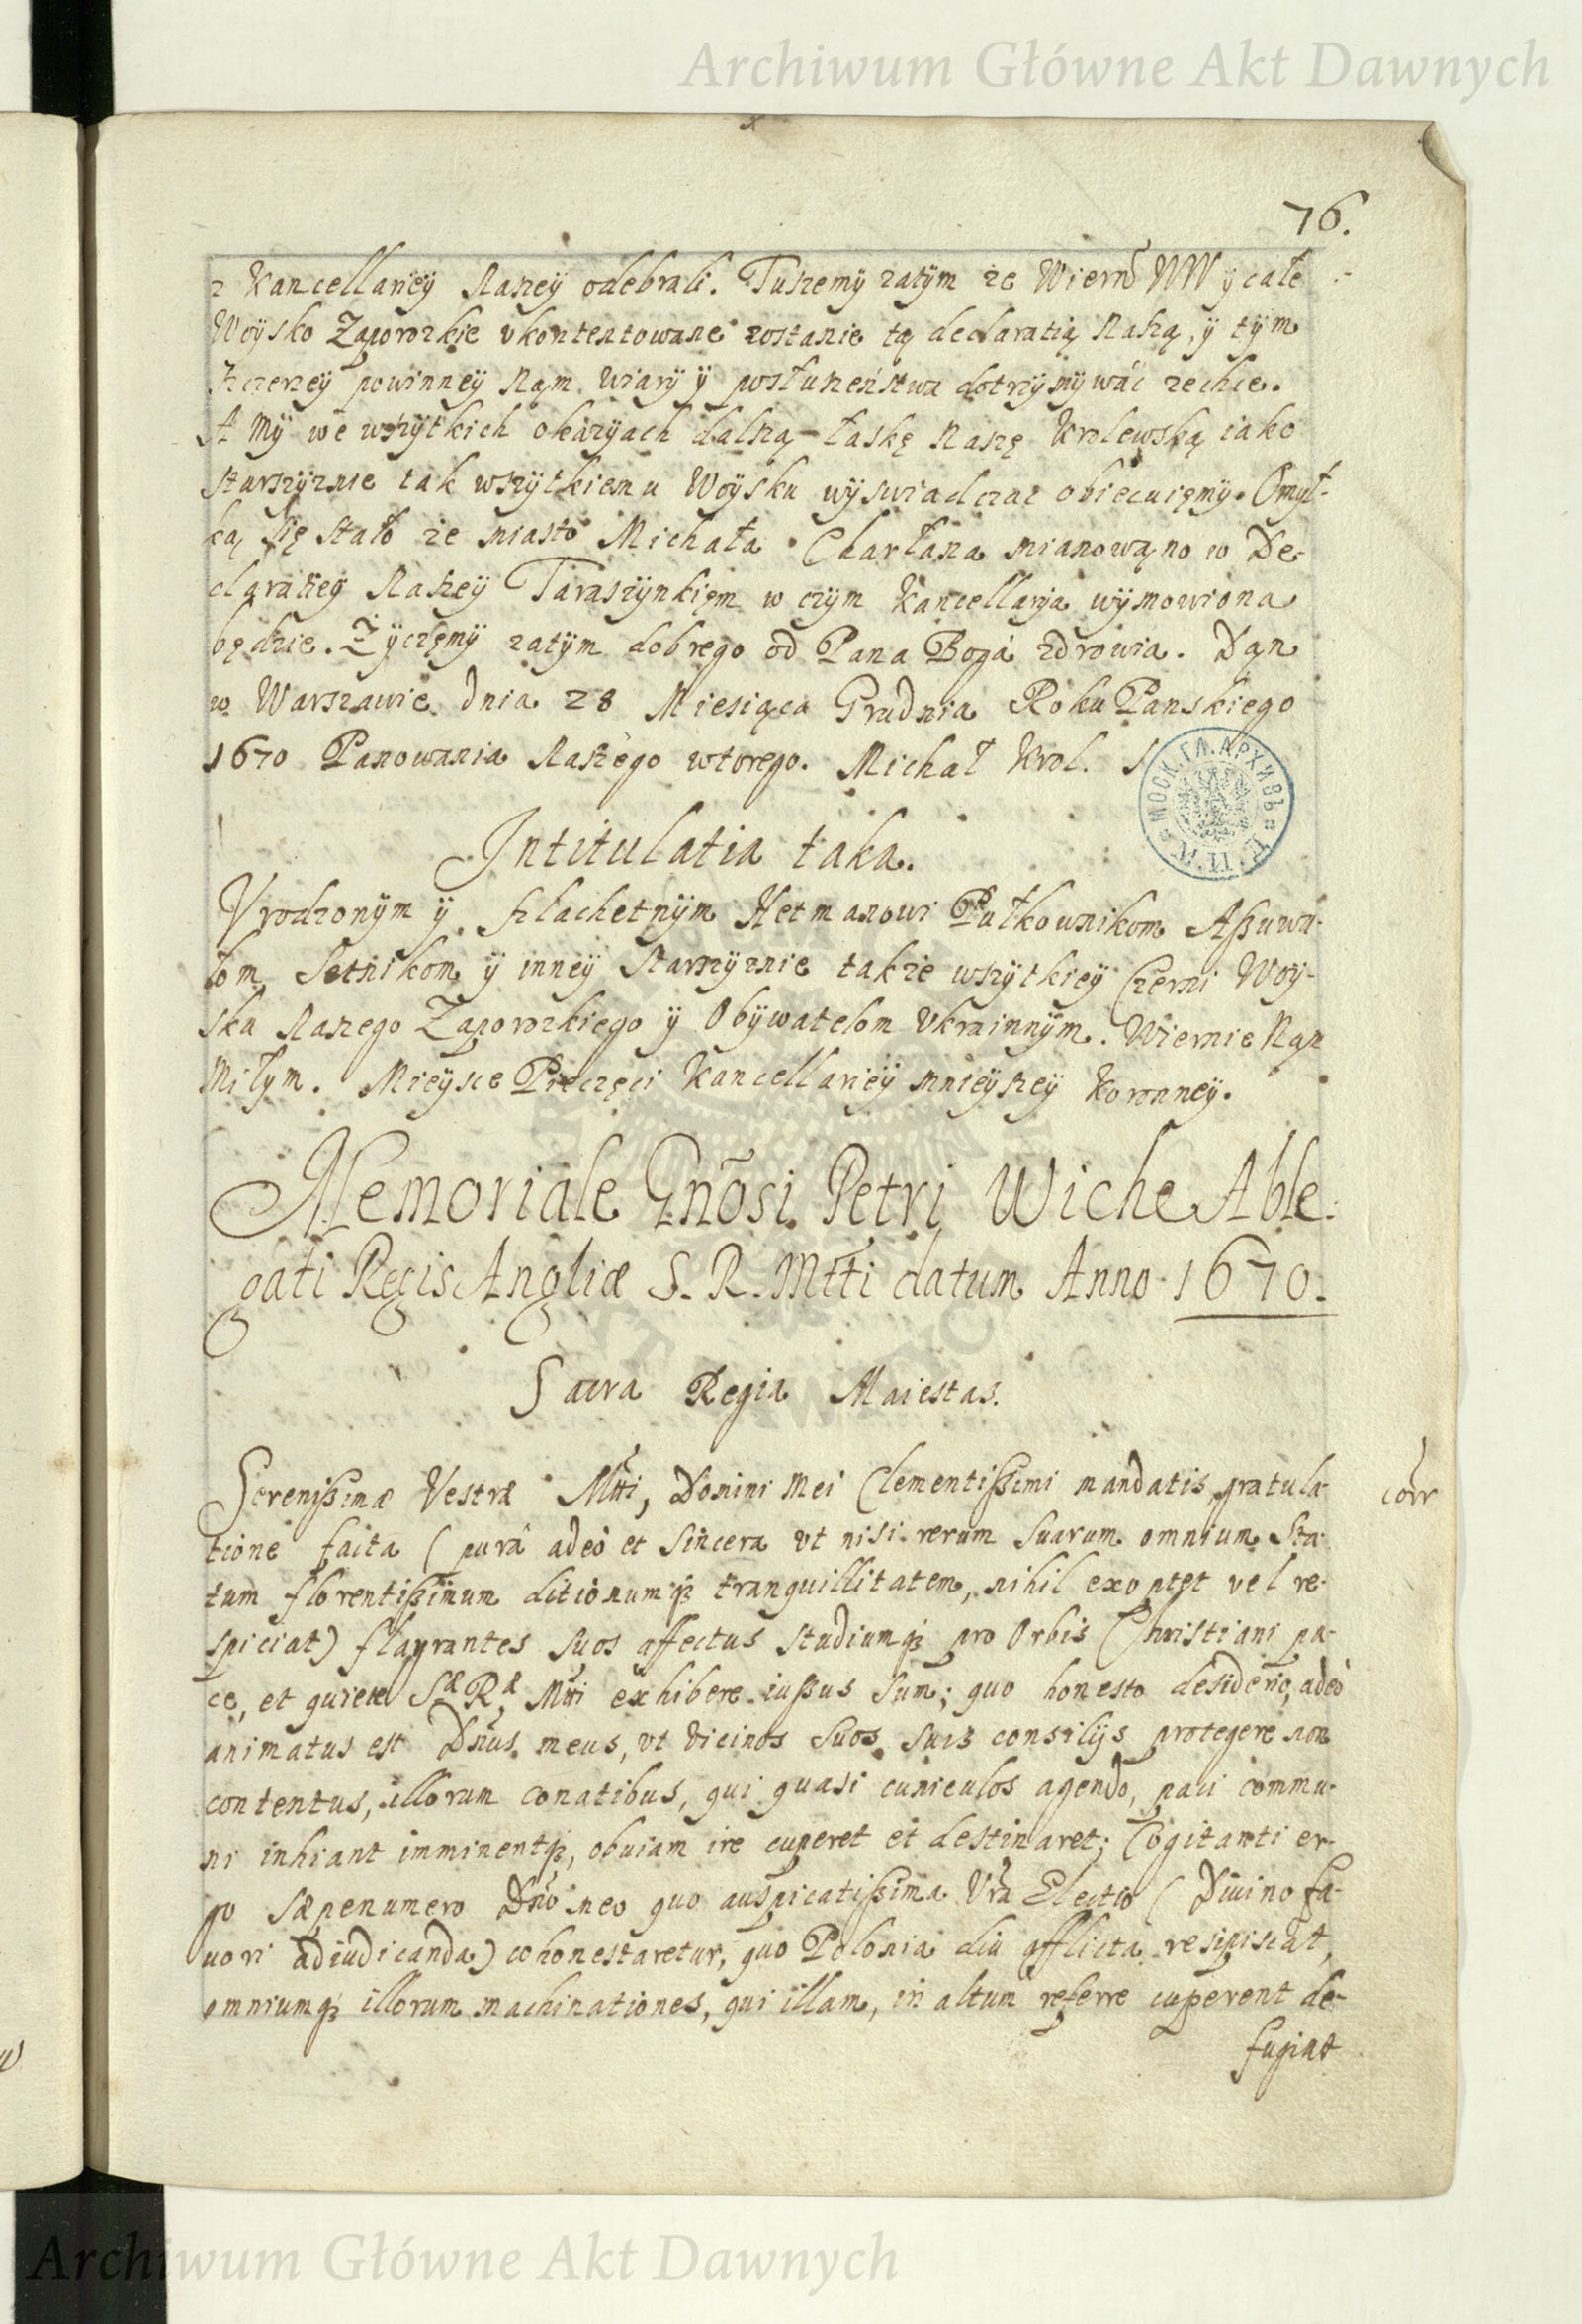 Archiwum Główne Akt Dawnych
76.
z Kancellariey Naszey odebrali. Tuszemy zatym ze Wiern WW y całe
Woysko Zaporozkie vkontentowane zostanie tą declaratią Naszą, y tym
szczerzey powinney Nam wiary y posłuszeństwa dotrzymywać zechce.
A My we wszytkich okazyach dalszą łaskę Naszę Krolewską iako
starszyznie tak wszytkiemu Woysku wyswiadczac obiecuięmy. Omył-
ką się stało ze miasto Michała Charłana mianowąno w De-
claratiey Naszey Taraszynkięm w czym Kancellarya wymowiona
będzie. Zyczęmy zatym dobrego od Pana Boga zdrowia. Dąn
w Warszawie dnia 28 Miesiąca Grudnia Roku Panskiego
1670 Panowania Naszego wtorego. Michał Krol.
МОСК. ГЛ. АРХИВЪ
Intitulatia taka.
Vrodzonym y szlachetnym Hetmanowi Pułkownikom Assawu-
łom Setnikom y inney starszyznie takze wszytkiey Czerni Woy-
ska Naszego Zaporozkiego y Obywatelom Vkrainnym. Wiernie Nąm
Miłym. Mieysce Pieczęci Kancellariey mnieyszey Koronney.
Memoriale Gnōsi Petri Wiche Able-
gati Regis Angliæ S. R. Mtti datum Anno 1670.
Sacra Regia Maiestas.
Serenissimæ Vestræ Mtti, Domini Mei Clementissimi mandatis, gratula-
corr
tione facta (purâ adeò et sincera vt nisi rerum suarum omnium sta-
tum florentissimum ditionumq; tranquillitatem, nihil exoptet vel re-
spiciat) flagrantes suos affectus studiumq; pro Orbis Christiani pa-
ce, et quiete Sæ Ræ Mtti exhibere iussus sum; quo honesto desiderio, adeò
animatus est Dnus meus, vt vicinos suos suis consilijs protegere non
contentus, illorum conatibus, qui quasi cuniculos agendo, paci commu-
ni inhiant imminentq;, obuiam ire cuperet et destinaret; Cogitanti er-
go sæpenumero Dno meo quo auspicatissima Vra Electio (Diuino fa-
uori adiudicanda) cohonestaretur, quo Polonia diu afflicta resipiscat,
omniumq; illorum machinationes, qui illam, in altum referre cuperent de-
fugiat
Archiwum Główne Akt Dawnych